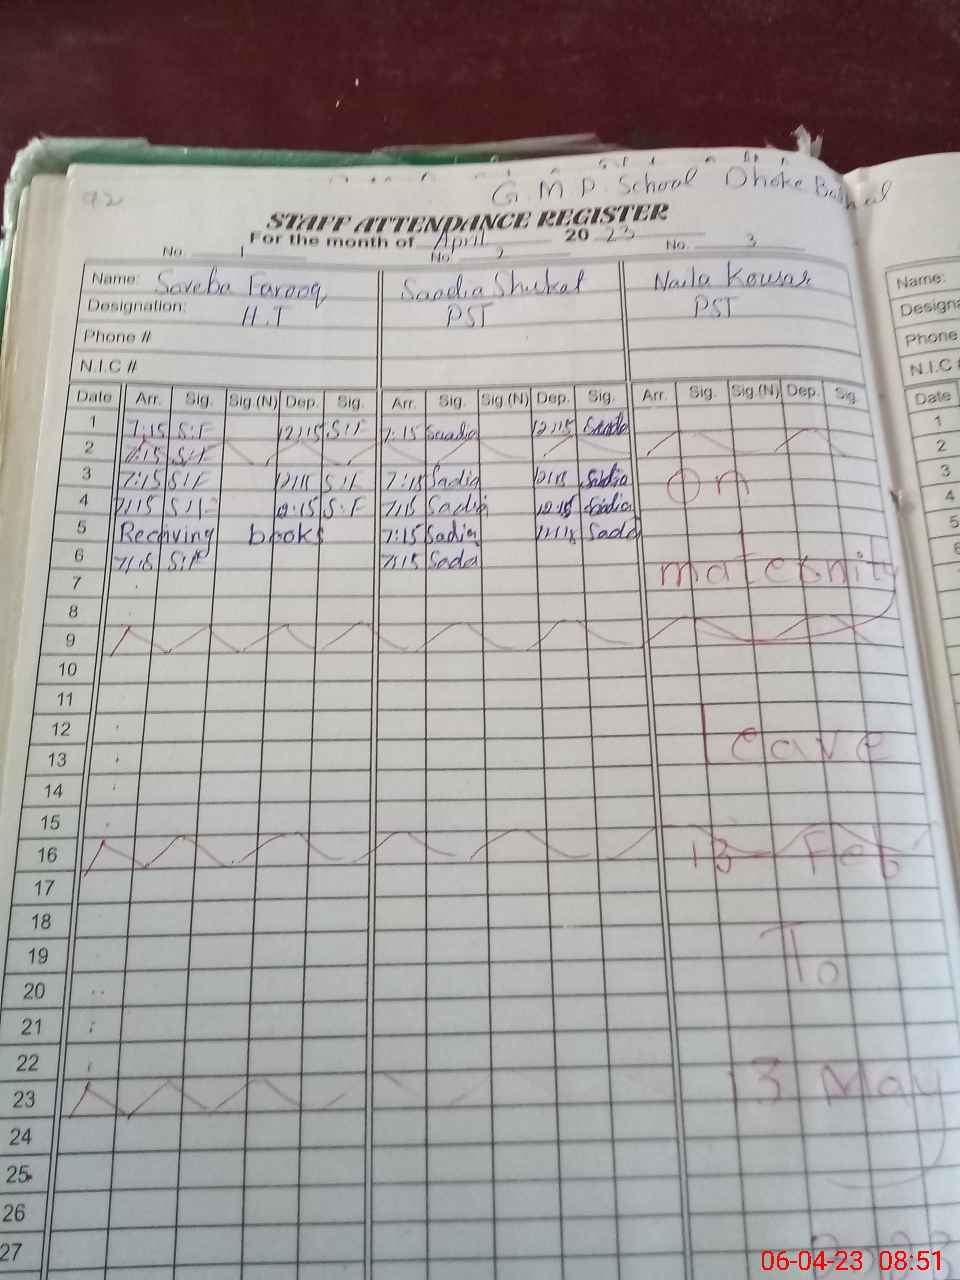 92
G.M.P. School Dhoke
STAFF ATTENDANCE REGISTER
For the month of April 2023
No. 1 No 2 No. 3
Name: Saveba Farooq Saadia Shukat Naila Kowsar Name:
Designation: H.T PST PST
Phone # Phone
N.I.C # N.I.C
Date Arr. Sig. Sig.(N) Dep. Sig. Arr. Sig. Sig.(N) Dep. Sig. Arr. Sig. Sig.(N) Dep. Sig. Date
1 7:15 S:F 12:15 S:F 7:15 Saadia 12:15 Saadia 1
2 7:15 S:F 2
3 7:15 S:F 12:15 S:F 7:15 Sadia 12:15 Sadia On 3
4 7:15 S:F 12:15 S:F 7:15 Sadia 12:15 Sadia 4
5 Receiving books 7:15 Sadia Sadia 5
6 7:15 S:F 7:15 Sadia maternity
7
8
9
10
11
12 Leave
13
14
15
16 13 Feb
17
18
19 To
20
21
22
23 13 May
24
25
26
27
06-04-23 08:51